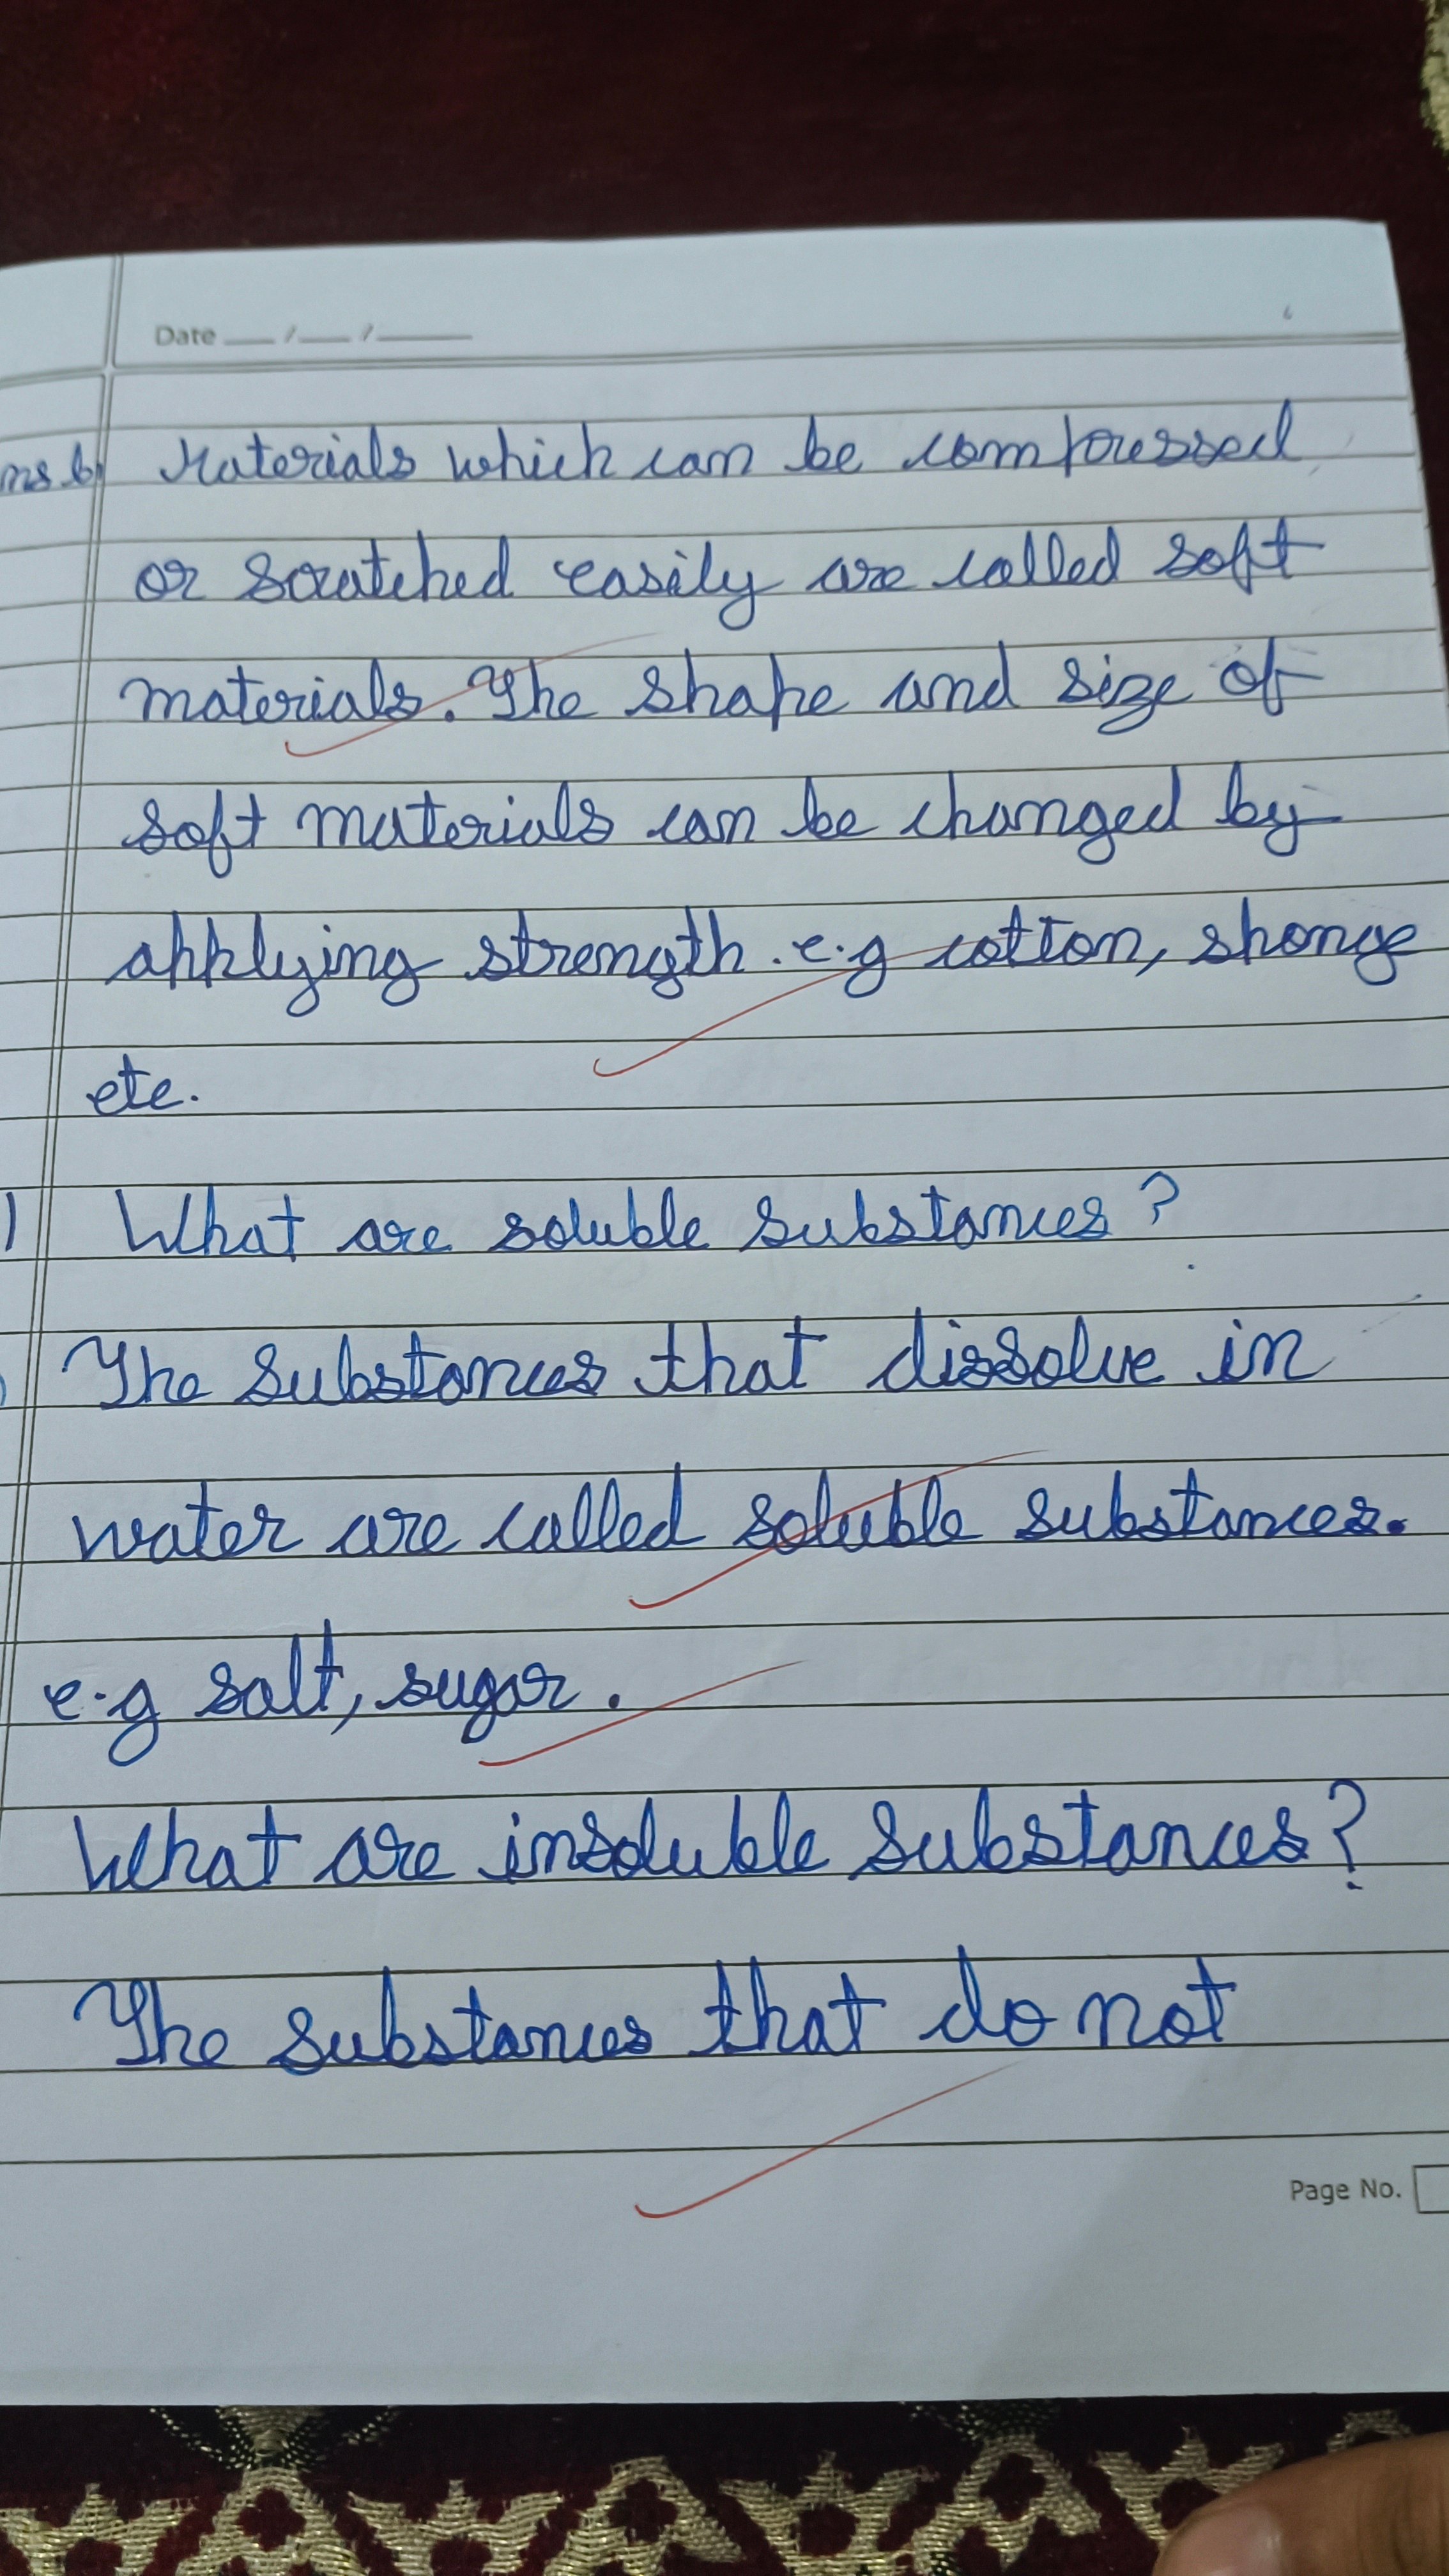 Date __/__/____
ns. 6) Materials which can be compressed
or scratched easily are called soft
materials. The shape and size of
soft materials can be changed by
applying strength. e.g cotton, sponge
etc.
) What are soluble substances?
) The substances that dissolve in
water are called soluble substances.
e.g salt, sugar.
What are insoluble substances?
The substances that do not
Page No.